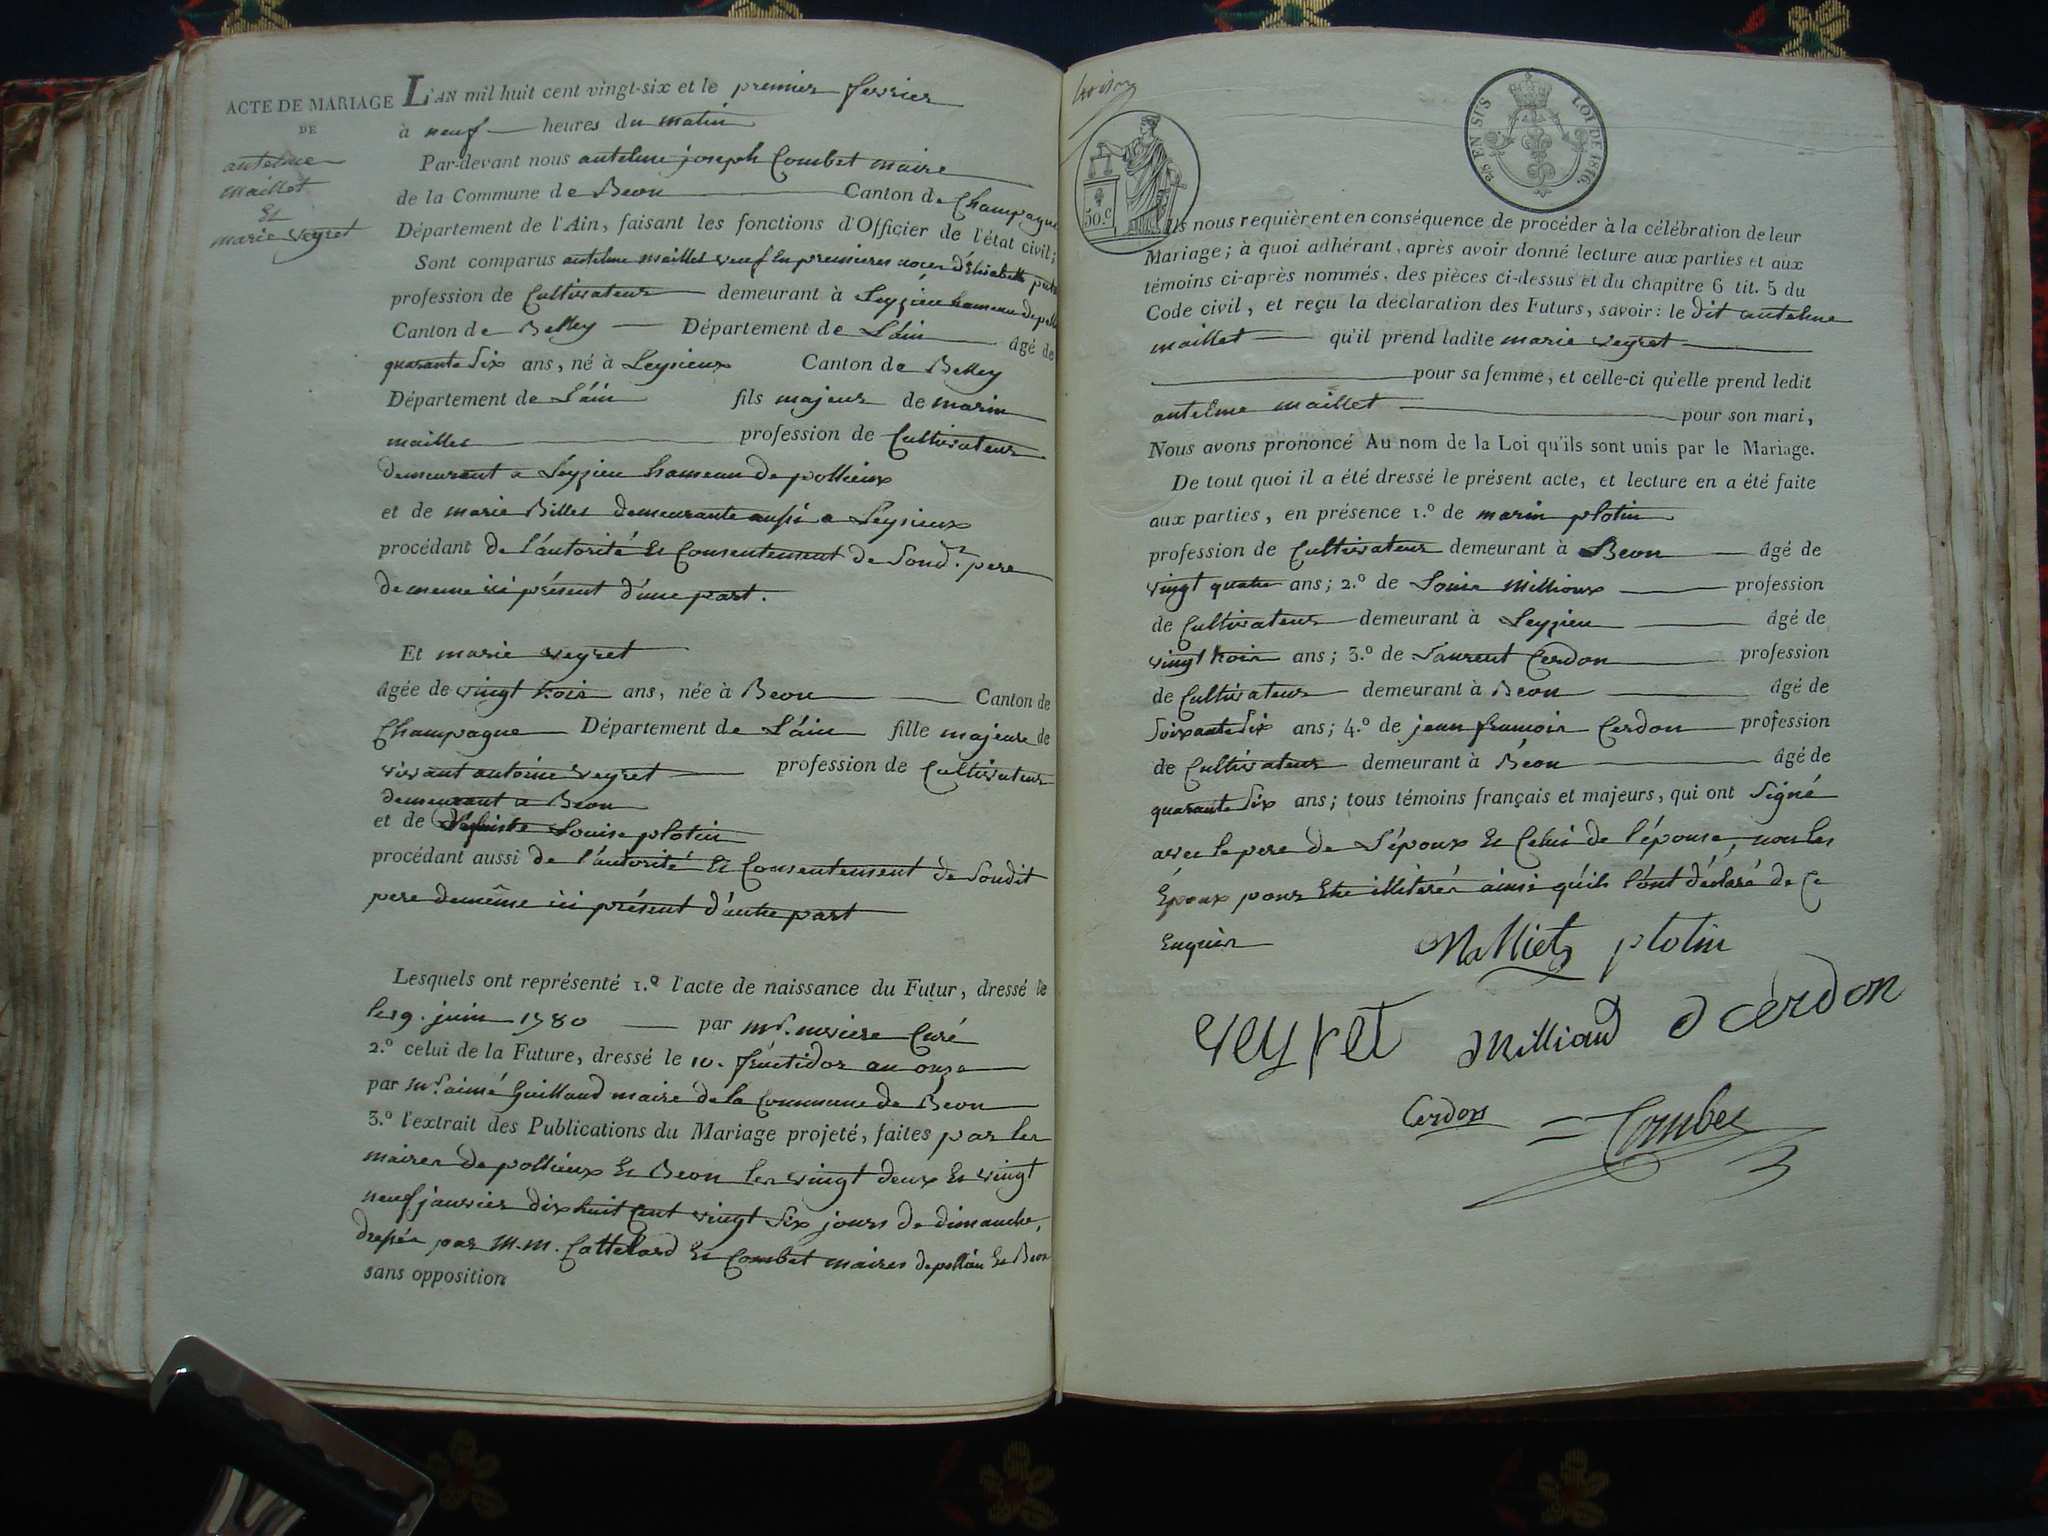 ACTE DE MARIAGE
DE
antelme
maillet
Et
marie veyret
L'AN mil huit cent vingt-six et le premier fevrier
à neuf heures du matin
Par-devant nous antelme joseph Combet maire
de la Commune de Beon Canton de Champagne
Département de l'Ain, faisant les fonctions d'Officier de l'état civil;
Sont comparus antelme maillet veuf En premieres noces d'Elisabeth
profession de Cultivateur demeurant à Leyzieu hameau de
Canton de Belley Département de L'ain âgé de
quarante Six ans, né à Leyzieux Canton de Belley
Département de L'ain fils majeur de marin
maillet profession de Cultivateur
demeurant a Leyzieu hameau de pollieux
et de marie Billet demeurante aussi a Leyzieux
procédant de l'autorité Et Consentement de Sond.t pere
de meme ici présent d'une part.
Et marie veyret
âgée de vingt trois ans, née à Beon Canton de
Champagne Département de L'ain fille majeure de
vivant antoine veyret profession de Cultivateur
demeurant a Beon
et de Défunte Louise plotin
procédant aussi de l'autorité Et Consentement de Sondit
pere demême ici présent d'autre part
Lesquels ont représenté 1.º l'acte de naissance du Futur, dressé le
le 19. juin 1780 par mr. Curé
2.º celui de la Future, dressé le 10. fructidor an onze
par mr. aimé Guillaud maire de la Commune de Beon
3.º l'extrait des Publications du Mariage projeté, faites par les
maires de pollieux Et Beon les vingt deux Et vingt
neuf janvier dix huit Cent vingt Six jours de dimanche,
dressés par M.M. Cattelard Et Combet maires de pollieu Et Beon
sans opposition
trois
50.C
25 EN SUS LOI DE 1816.
Ils nous requièrent en conséquence de procéder à la célébration de leur
Mariage; à quoi adhérant, après avoir donné lecture aux parties et aux
témoins ci-après nommés, des pièces ci-dessus et du chapitre 6 tit. 5 du
Code civil, et reçu la déclaration des Futurs, savoir: le dit antelme
maillet qu'il prend ladite marie veyret
pour sa femme, et celle-ci qu'elle prend ledit
antelme maillet pour son mari,
Nous avons prononcé Au nom de la Loi qu'ils sont unis par le Mariage.
De tout quoi il a été dressé le présent acte, et lecture en a été faite
aux parties, en présence 1.º de marin plotin
profession de Cultivateur demeurant à Beon âgé de
vingt quatre ans; 2.º de Louis Millioux profession
de Cultivateur demeurant à Leyzieu âgé de
vingt trois ans; 3.º de Laurent Cerdon profession
de Cultivateur demeurant à Beon âgé de
Soixante Six ans; 4.º de jean francois Cerdon profession
de Cultivateur demeurant à Béon âgé de
quarante Six ans; tous témoins français et majeurs, qui ont Signé
avec le pere de L'époux Et Celui de l'épouse, non les
Époux pour Etre illiterés ainsi qu'ils l'ont déclaré de Ce
Enquis
Malliet plotin
veyret Milliaud cerdon
Cerdon Combet